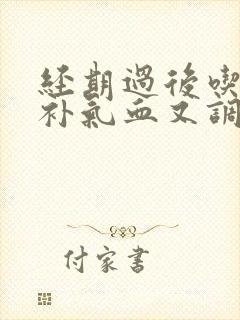 经期過後喫
补氣血又調
付家書